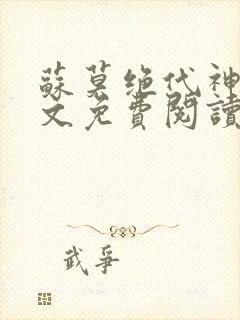 蘇莫绝代神
文免費閱讀
武爭